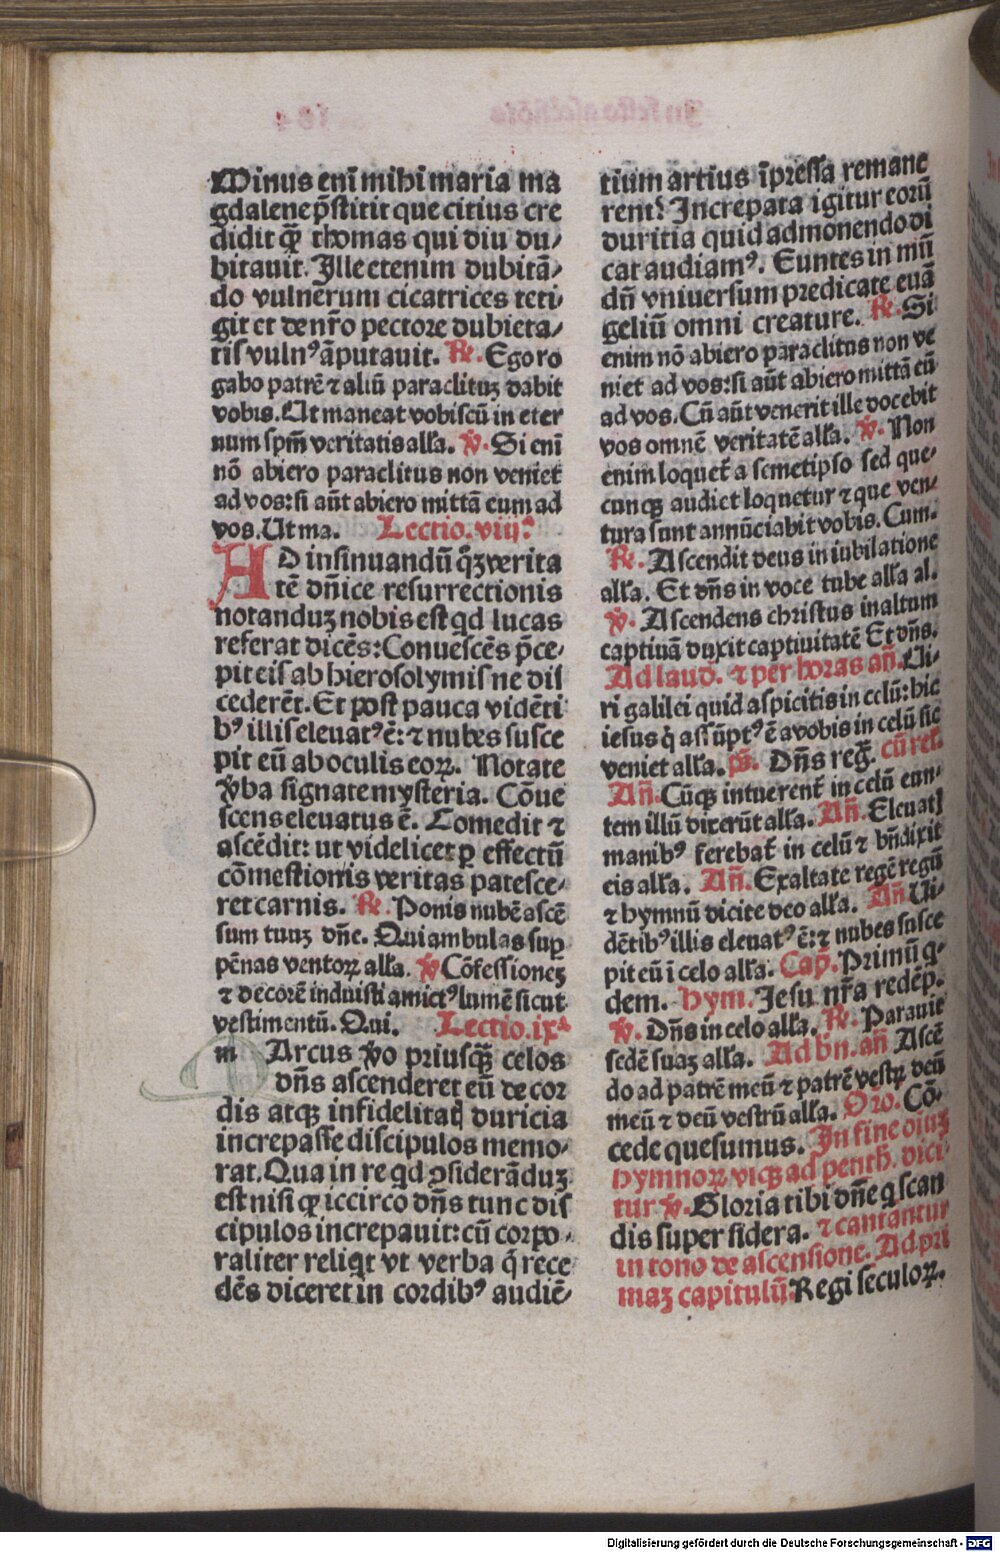 Minus eni᷇ mihi maria ma
gdalene p̄stitit que citius cre
didit q̄ꝫ thomas qui diu du⸗
bitauit. Ille etenim dubitā⸗
do vulnerum cicatrices teti⸗
git et de nr̄o pectore dubieta⸗
tis vulnꝰ āputauit. ℟. Ego ro
gabo patrē ⁊ aliū paraclituꝫ dabit
vobis. Ut maneat vobiscū in eter
num sp̄m veritatis all’a. ℣. Si enī
nō abiero paraclitus non veniet
ad vos: si aūt abiero mittā eum ad
vos. Ut ma. Lectio. viij.ª
AD insinuandū q̄ꝫ verita
tē dn̄ice resurrectionis
notanduꝫ nobis est qd lucas
referat dicēs: Conuescēs p̄ce⸗
pit eis ab hierosolymis ne dis
cederēt. Et post pauca vidēti
bꝰ illis eleuatꝰ ē: ⁊ nubes susce
pit eū ab oculis eoꝝ. Notate
v̄ba signate mysteria. Cōue
scens eleuatus ē. Comedit ⁊
ascēdit: ut videlicet ꝑ effectū
cōmestionis veritas patesce⸗
ret carnis. ℟. Ponis nubē ascē
sum tuuꝫ dn̄e. Qui ambulas suꝑ
pēnas ventoꝝ all’a. ℣ Cōfessioneꝫ
⁊ decorē induisti amictꝰ lumē sicut
vestimentū. Qui. Lectio. ixª
m Arcus v̄o priusq̄ꝫ celos
dn̄s ascenderet eū de cor
dis atqꝫ infidelitaꝗ duricia
increpasse discipulos memo⸗
rat. Qua in re qd ꝯsiderāduꝫ
est nisi ꝙ iccirco dn̄s tunc dis
cipulos increpauit: cū corpo⸗
raliter reliqt vt verba q̄ rece
dēs diceret in cordibꝰ audiē⸗
tium artius īpressa remane
rent? Increpata igitur eorū
duritia quid admonendo di
cat audiamꝰ. Euntes in mū
dū vniuersum predicate euā
geliū omni creature. ℟. Si
enim nō abiero paraclitus non ve
niet ad vos: si aūt abiero mittā eū
ad vos. Cū aūt venerit ille docebit
vos omnē veritatē all’a. ℣. Non
enim loquet̄ a semetipso sed que⸗
cunqꝫ audiet loquetur ⁊ que ven⸗
tura sunt annūciabit vobis. Cum.
℟. Ascendit deus in iubilatione
all’a. Et dn̄s in voce tube all’a al.
℣. Ascendens christus in altum
captiuā duxit captiuitatē Et dn̄s.
Ad laud. ⁊ per horas an̄. Ui⸗
ri galilei quid aspicitis in celū: hic
iesus q̄ assūptꝰ ē a vobis in celū sic
veniet all’a. ps̄. Dn̄s reg̅. cū rel̄.
An̄. Cūqꝫ intuerent̄ in celū eun⸗
tem illū dixerūt all’a. An̄. Eleuatꝭ
manibꝰ ferebat̄ in celū ⁊ bn̄dixit
eis all’a. An̄. Exaltate regē regū
⁊ hymnū dicite deo all’a. An̄ Ui⸗
dētibꝰ illis eleuatꝰ ē: ⁊ nubes susce
pit eū ī celo all’a. Cap̄. Primū q⸗
dem. Hym. Jesu nr̄a redēp.
℣. Dn̄s in celo all’a. ℟. Parauit
sedē suaꝫ all’a. Ad bn̄. an̄ Ascē
do ad patrē meū ⁊ patrē vestꝝ deū
meū ⁊ deū vestrū all’a. Oro. Cō⸗
cede quesumus. In fine oiuꝫ
hymnoꝝ vsqꝫ ad penth. dici⸗
tur ℣. Gloria tibi dn̄e q scan
dis super sidera. ⁊ cantantur
in tono de ascensione. Ad pri
maꝫ capitulū: Regi seculoꝝ.
Digitalisierung gefördert durch die Deutsche Forschungsgemeinschaft - DFG